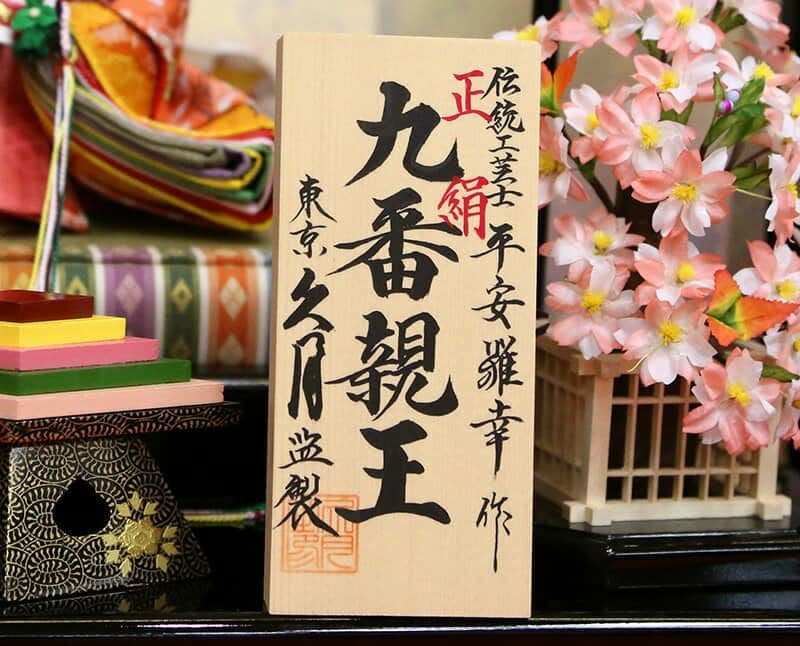 伝統工芸士 平安雛幸 作
正絹
九番親王
東京久月監製